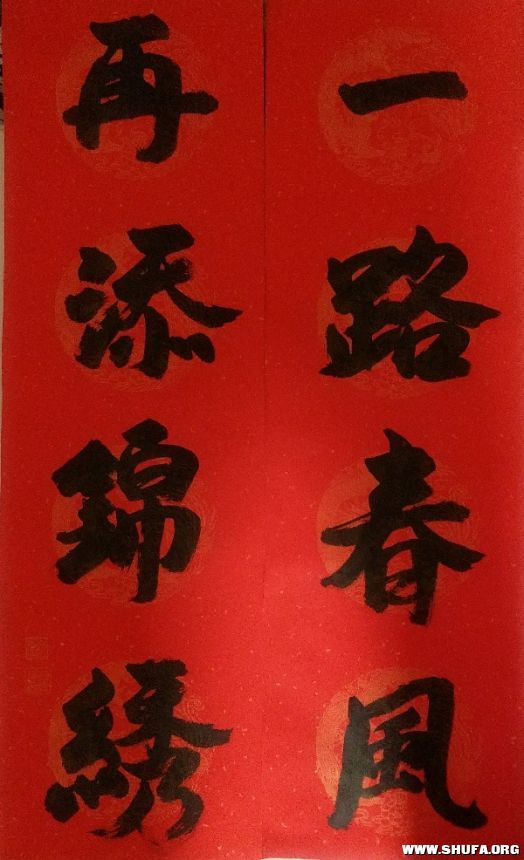 一路春風
再添錦綉
WWW.SHUFA.ORG